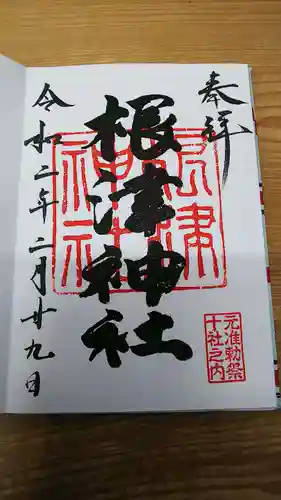 奉拝
根津神社
根津神社
元准勅祭
十社之内
令和二年二月廿九日